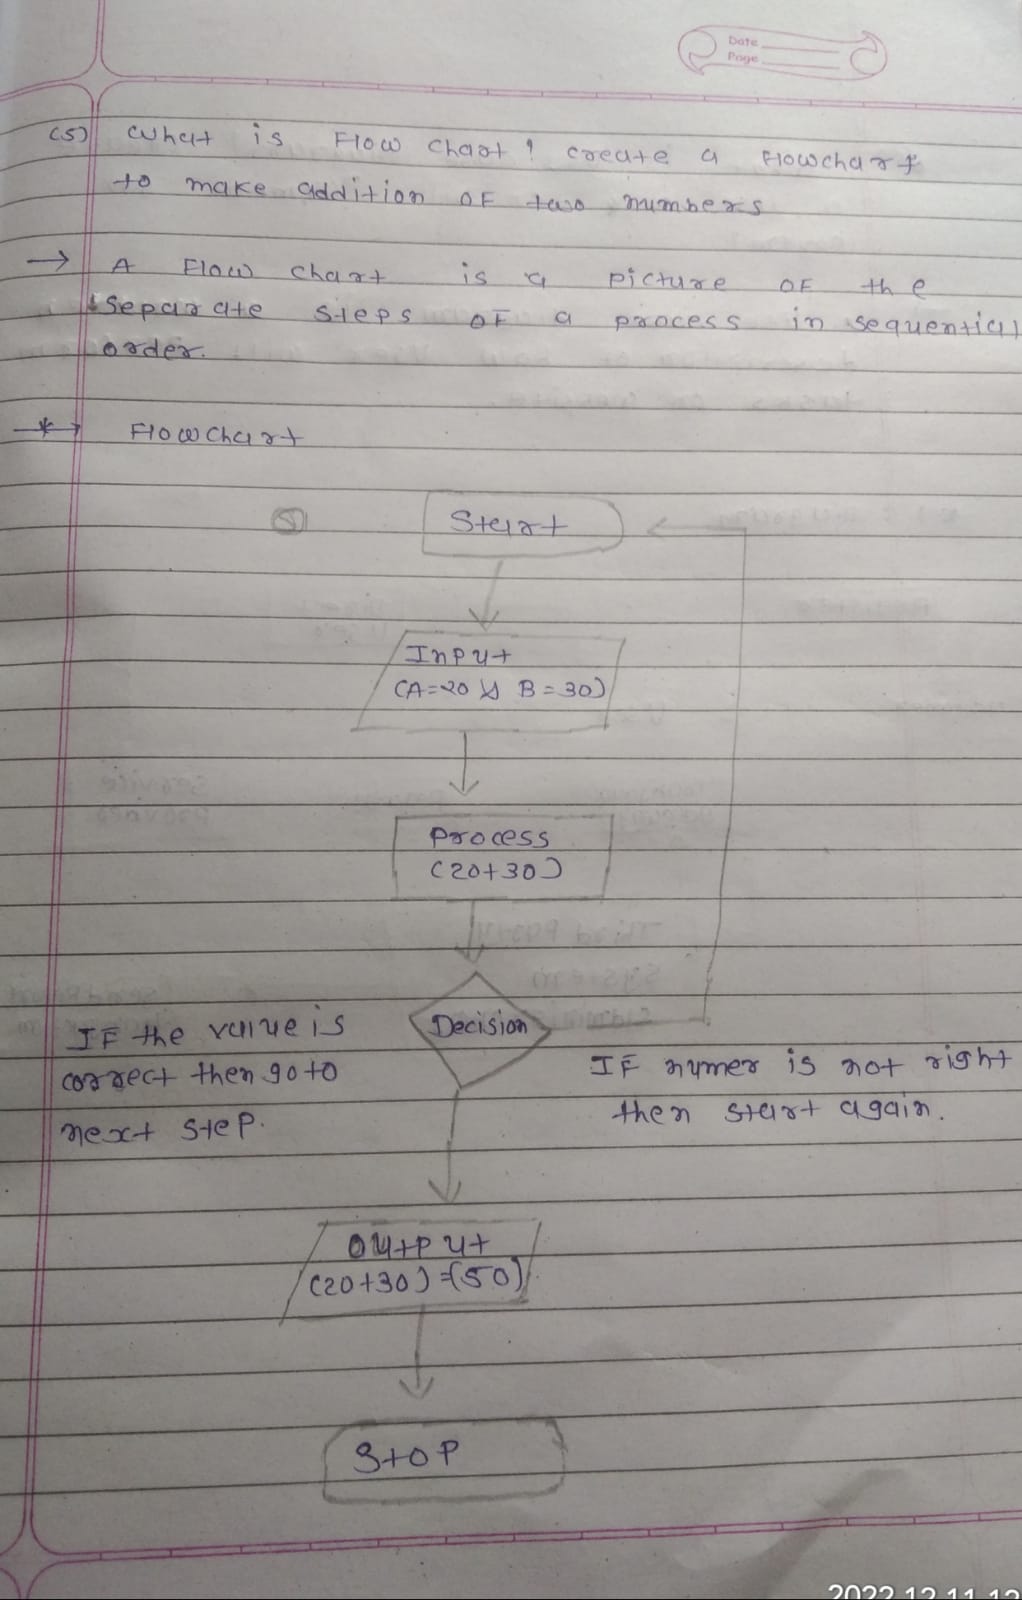 Date
Page
(5) What is Flow chart? create a Flowchart
to make addition OF two numbers
→ A Flow chart is a picture OF the
separate steps OF a process in sequential
order.
Flowchart
Start
Input
(A=20 & B=30)
Process
(20+30)
Decision
IF the value is
correct then go to
next step.
IF numer is not right
then start again.
Output
(20+30)=(50)
Stop